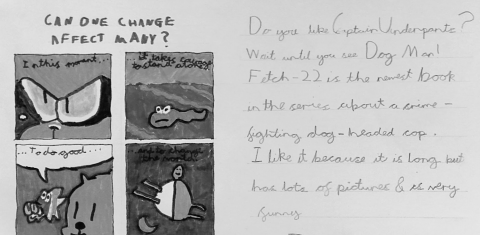 CAN ONE CHANGE
AFFECT MANY?
In this moment...
...it takes courage
to stand alone...
...To do good...
...and to change
the world.
Do you like Captain Underpants?
Wait until you see Dog Man!
Fetch-22 is the newest book
in the series about a crime-
fighting dog-headed cop.
I like it because it is long but
has lots of pictures & is very
funny